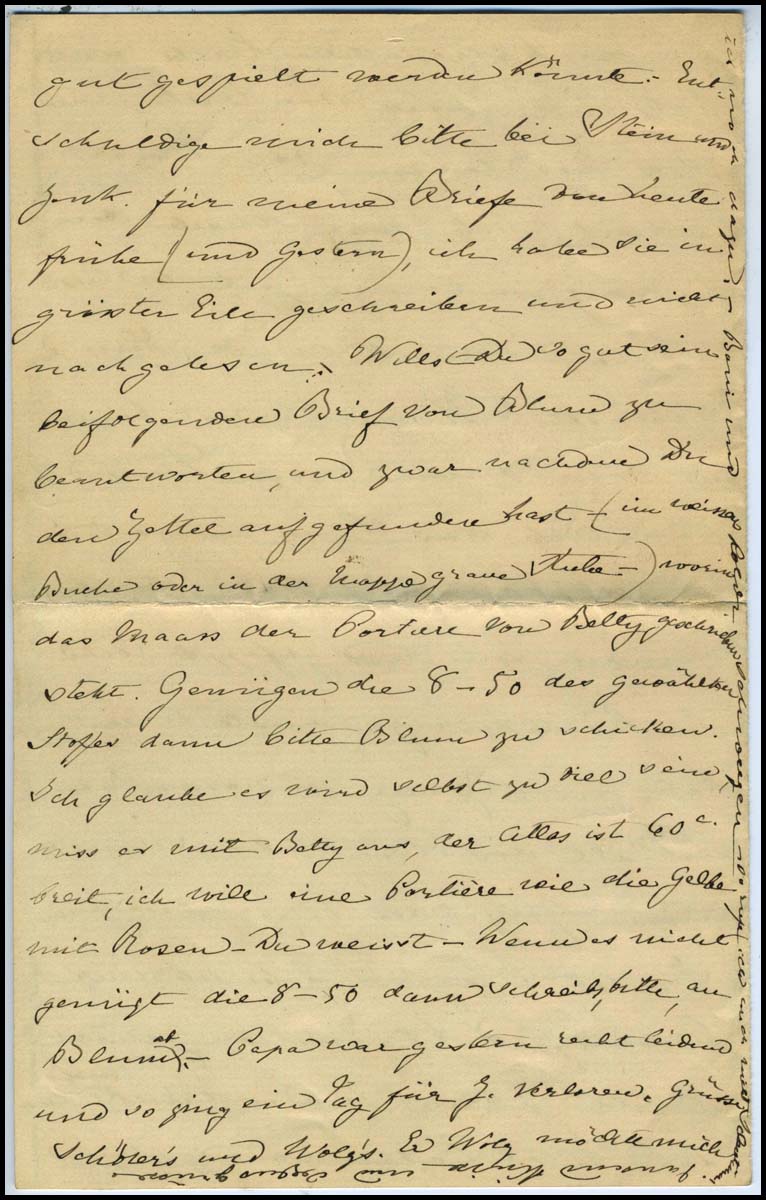 gut gespielt werden könnte. – Ent-
schuldige mich bitte bei Stein und
für meine Briefe von heute
frühe (und Gestern), ich habe sie in
grösster Eile geschrieben und nicht
nachgelesen. Willst Du so gut sein
beifolgenden Brief von Blum zu
beantworten, und zwar nachdem Du
den Zettel aufgefunden hast – (im weissen
Buche oder in der Mappe graue Stube –) worin
das Maass der Portiere von Betty geschrieben
steht. Genügen die 8–50 des gewählten
Stoffes dann bitte Blum zu schicken.
Ich glaube es wird selbst zu viel sein,
miss es mit Betty aus, der Atlas ist 60 c.
breit, ich will eine Portière wie die Gelbe
mit Rosen – Du weisst – Wenn es nicht
genügt die 8–50 dann schreib, bitte, an
Blum. – Papa war gestern recht leidend
und so ging ein Tag für J. verloren. Grüsse
und Wolz's. Er Wolz möchte mich
Boni und
schweigen so